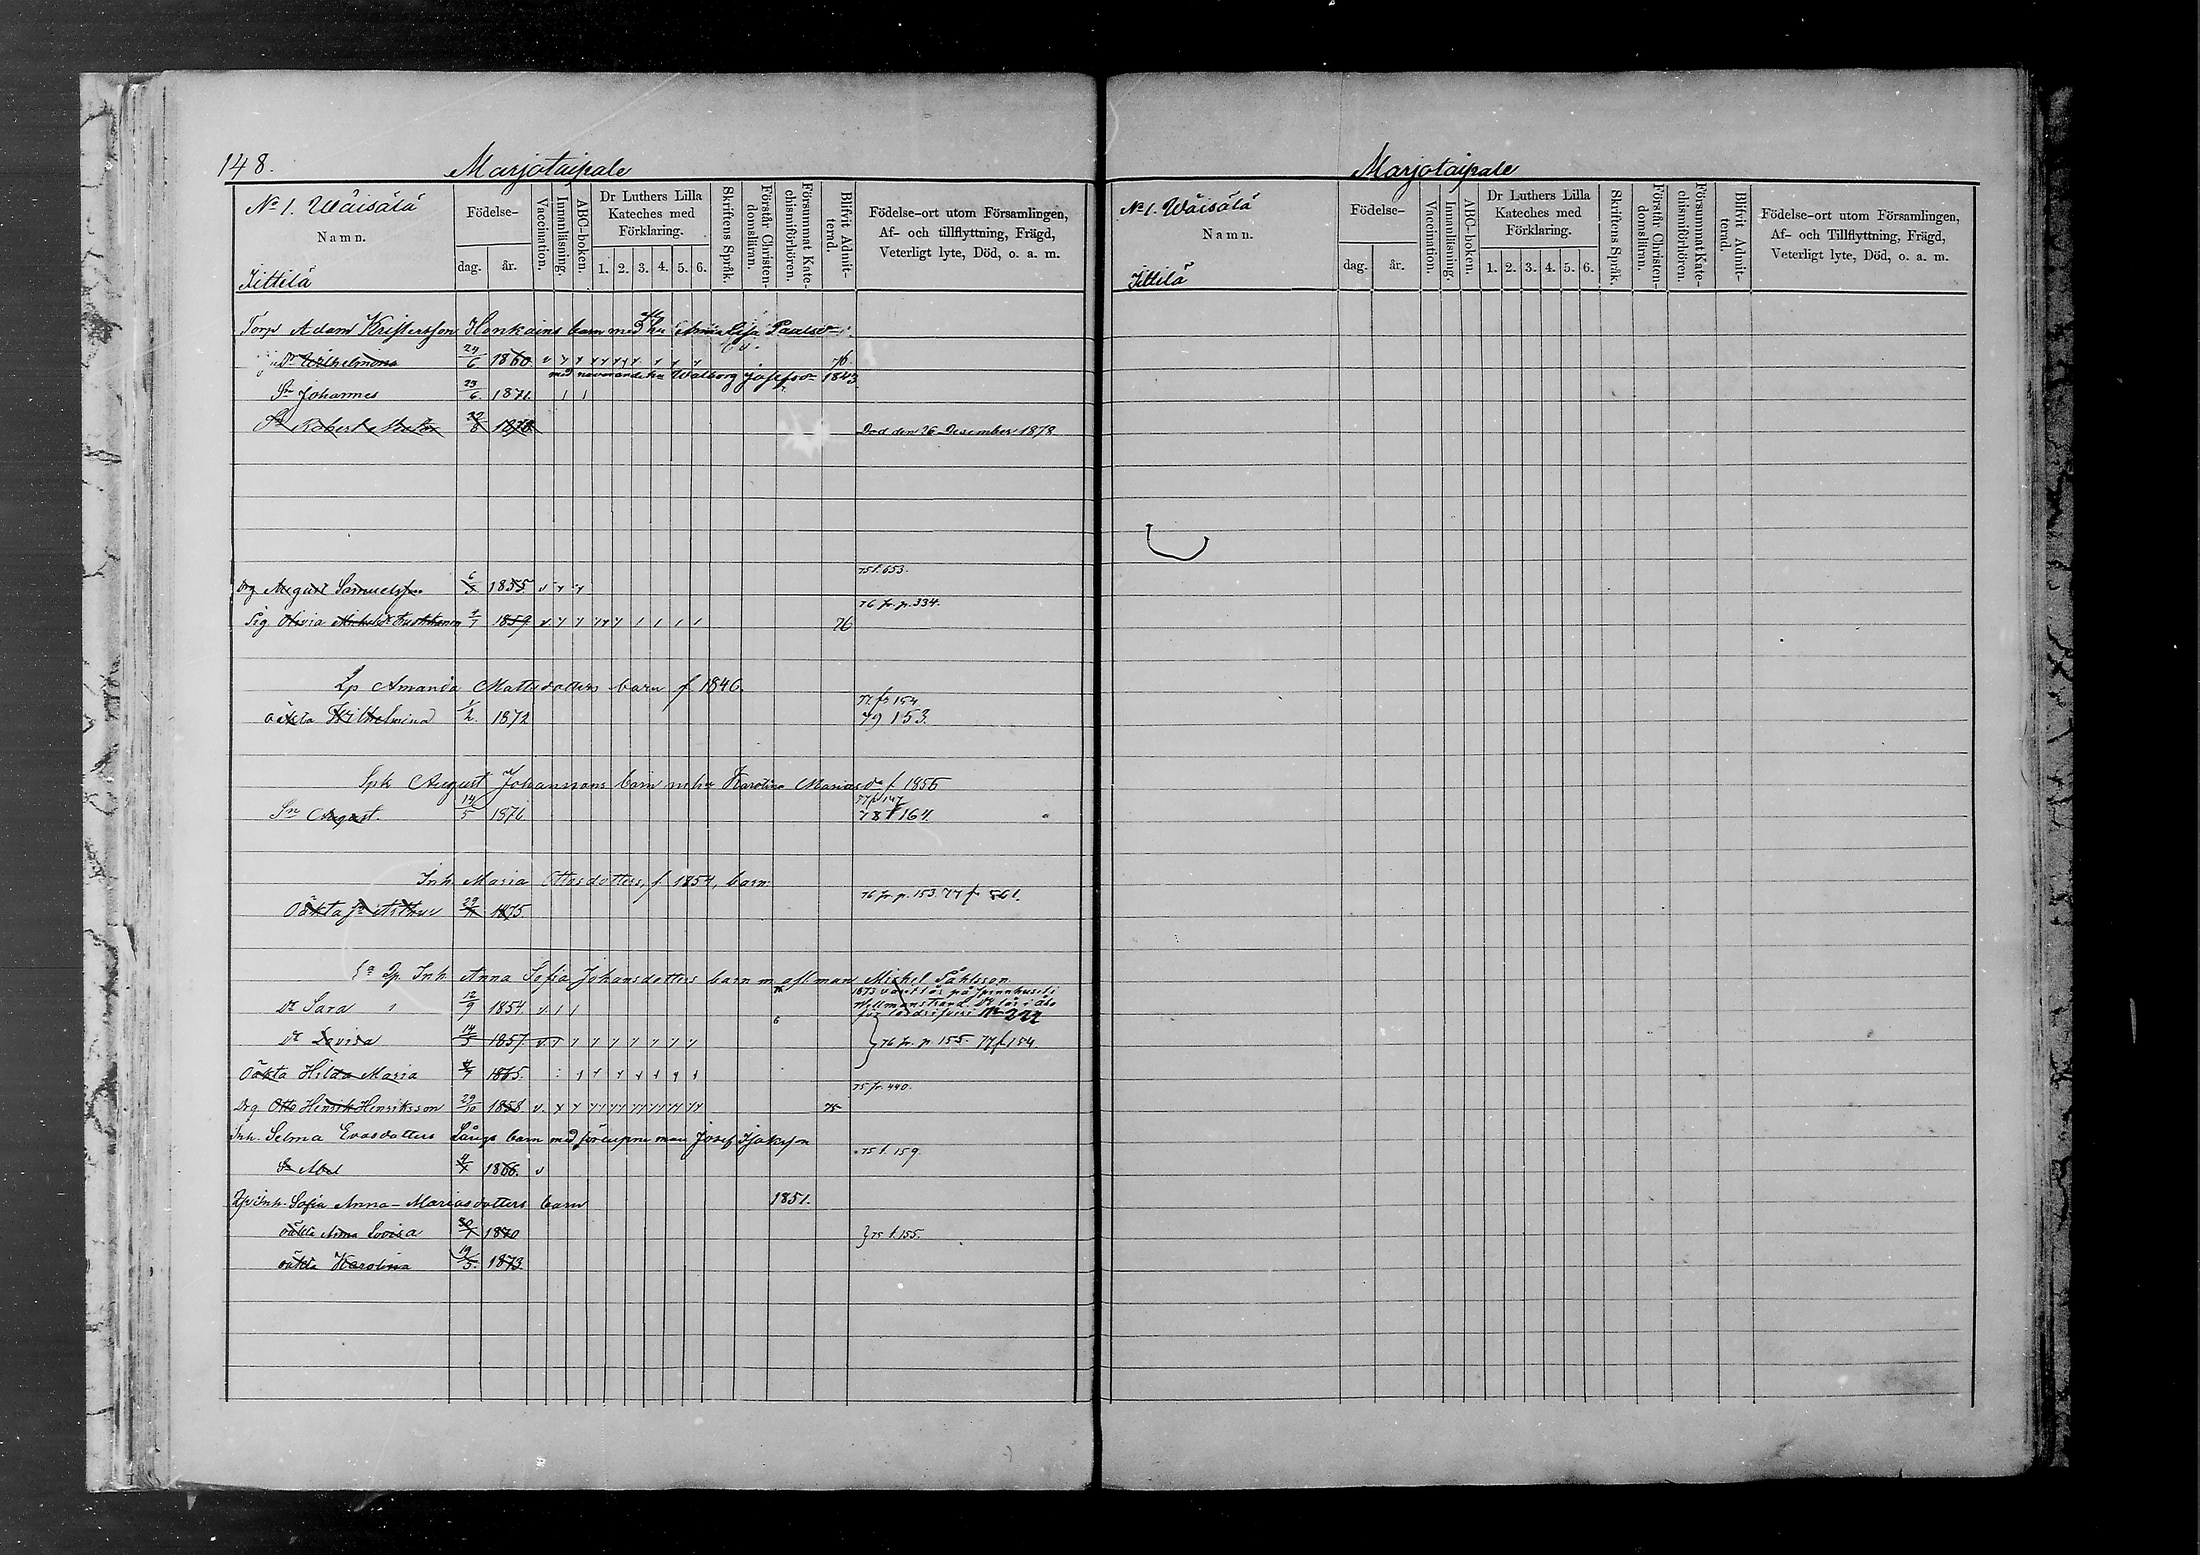 148.
Marjotaipale
No 1. Wäisälä
Namn.
Iittilä
Födelse-
dag.
år.
Vaccination.
Innanläsning.
ABC-boken.
Dr Luthers Lilla
Kateches med
Förklaring.
1. 2. 3. 4. 5. 6.
Skriftens Språk.
Förstår Christen-
domsläran.
Försummat Kate-
chismiförhören.
Blifvit Admit-
terad.
Födelse-ort utom Församlingen,
Af- och tillflyttning, Frägd,
Veterligt lyte, Död, o. a. m.
Torp Adam Kristersson Honkains barn med hu Anna Lisa Paulsdr
Dr Wilhelmina 24/6 1860 76.
med nuvarande hu Walborg Josefsdr 1843
Sn Johannes 23/6. 1871.
Sn Robert 22/8 1878 Död den 26 Desember 1878
75 t. 653.
Drg August Samuelsson 6/3 1855
76 fr. p. 334.
Pig Olivia 1859 76
Lp Amanda Mattsdotters barn f. 1846.
77 fr 154
oäkta Wilhelmina 1/2. 1872 79 153.
Sph August Johanssons barn m hu Karolina Mariasdr f. 1856
Sn August. 14/5 1876 78 t 164.
Inh. Maria Ottosdotters, f. 1854, barn.
76 fr. p. 153. 77 f 561.
Oäkta Sn Arthur 29/11 1875.
Inh. Anna Sofia Johansdotters barn m afl. man Michel Påhlsson
Dr Sara 12/9 1854. v. 1873 på spinnhuset i
Willmanstrand.
No 222
Dr Lovisa 14/5 1857 76 fr. p. 155. 77 f 154.
Oäkta Hilda Maria 1865.
75 fr. 440.
Drg Otto Henrik Henriksson 29/10 1858 v. 75
Inh. Selma Evasdotters Långs barn med förlupne man Josef
75 t. 159.
Sn Abel 1866. v
Inh. Sofia Anna-Mariasdotters barn 1851.
oäkta Anna Lovisa 1870 75 t. 155.
oäkta Karolina 19/5. 1873.
Marjotaipale
No 1. Wäisälä
Namn.
Iittilä
Födelse-
dag.
år.
Vaccination.
Innanläsning.
ABC-boken.
Dr Luthers Lilla
Kateches med
Förklaring.
1. 2. 3. 4. 5. 6.
Skriftens Språk.
Förstår Christen-
domsläran.
Försummat Kate-
chismiförhören.
Blifvit Admit-
terad.
Födelse-ort utom Församlingen,
Af- och Tillflyttning, Frägd,
Veterligt lyte, Död, o. a. m.